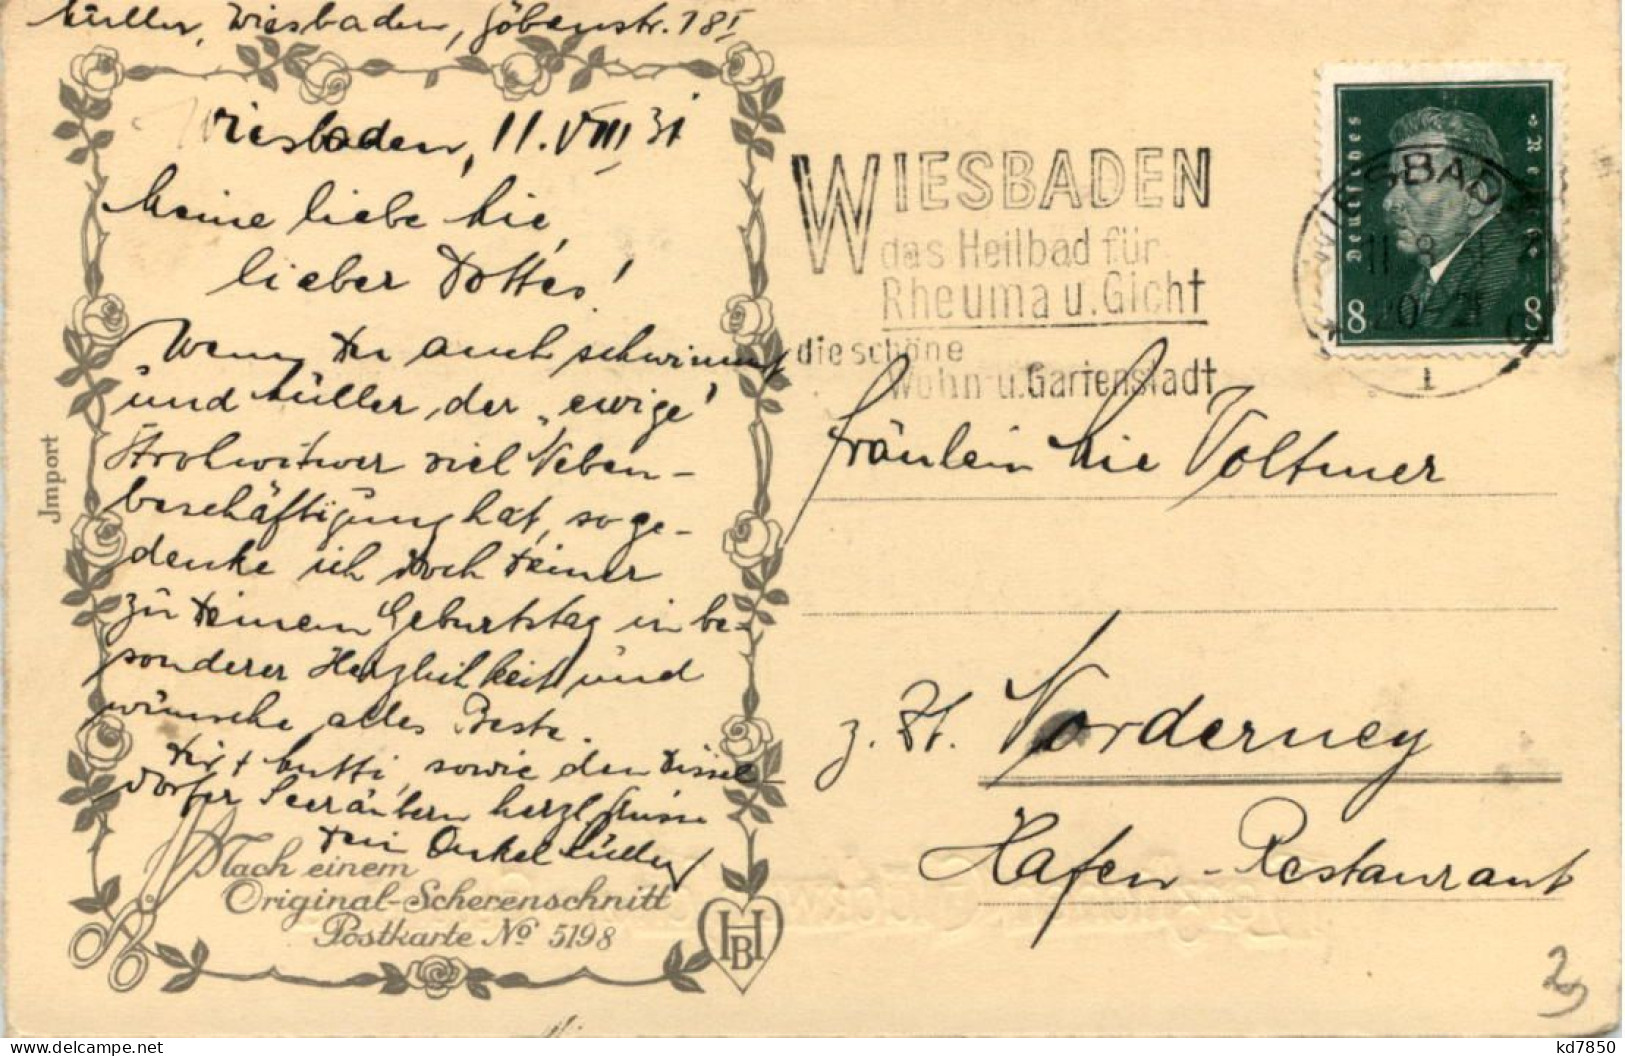 Müller, Wiesbaden, Göbenstr. 18 I
Wiesbaden, 11. VIII 31
Meine liebe Mie,
lieber Dottes!
Wenn Du auch schwimmst
und Müller, der „ewige"
Strohwitwer viel Neben-
beschäftigung hat, so ge-
denke ich doch Deiner
zu Deinem Geburtstag in be-
sonderer Herzlichkeit und
wünsche alles Beste.
Dir + Mutti, sowie den Düssel-
dorfer Seeräubern herzl. Grüsse
Dein Onkel Müller
Nach einem
Original-Scherenschnitt
Postkarte No 5198
HBH
Jmport
WIESBADEN
das Heilbad für
Rheuma u. Gicht
die schöne
Wohn- u. Gartenstadt
Deutsches
8 8
WIESBADEN
11 8
20-21
1
Fräulein Mie Voltmer
z. Zt. Norderney
Hafen-Restaurant
kd7850